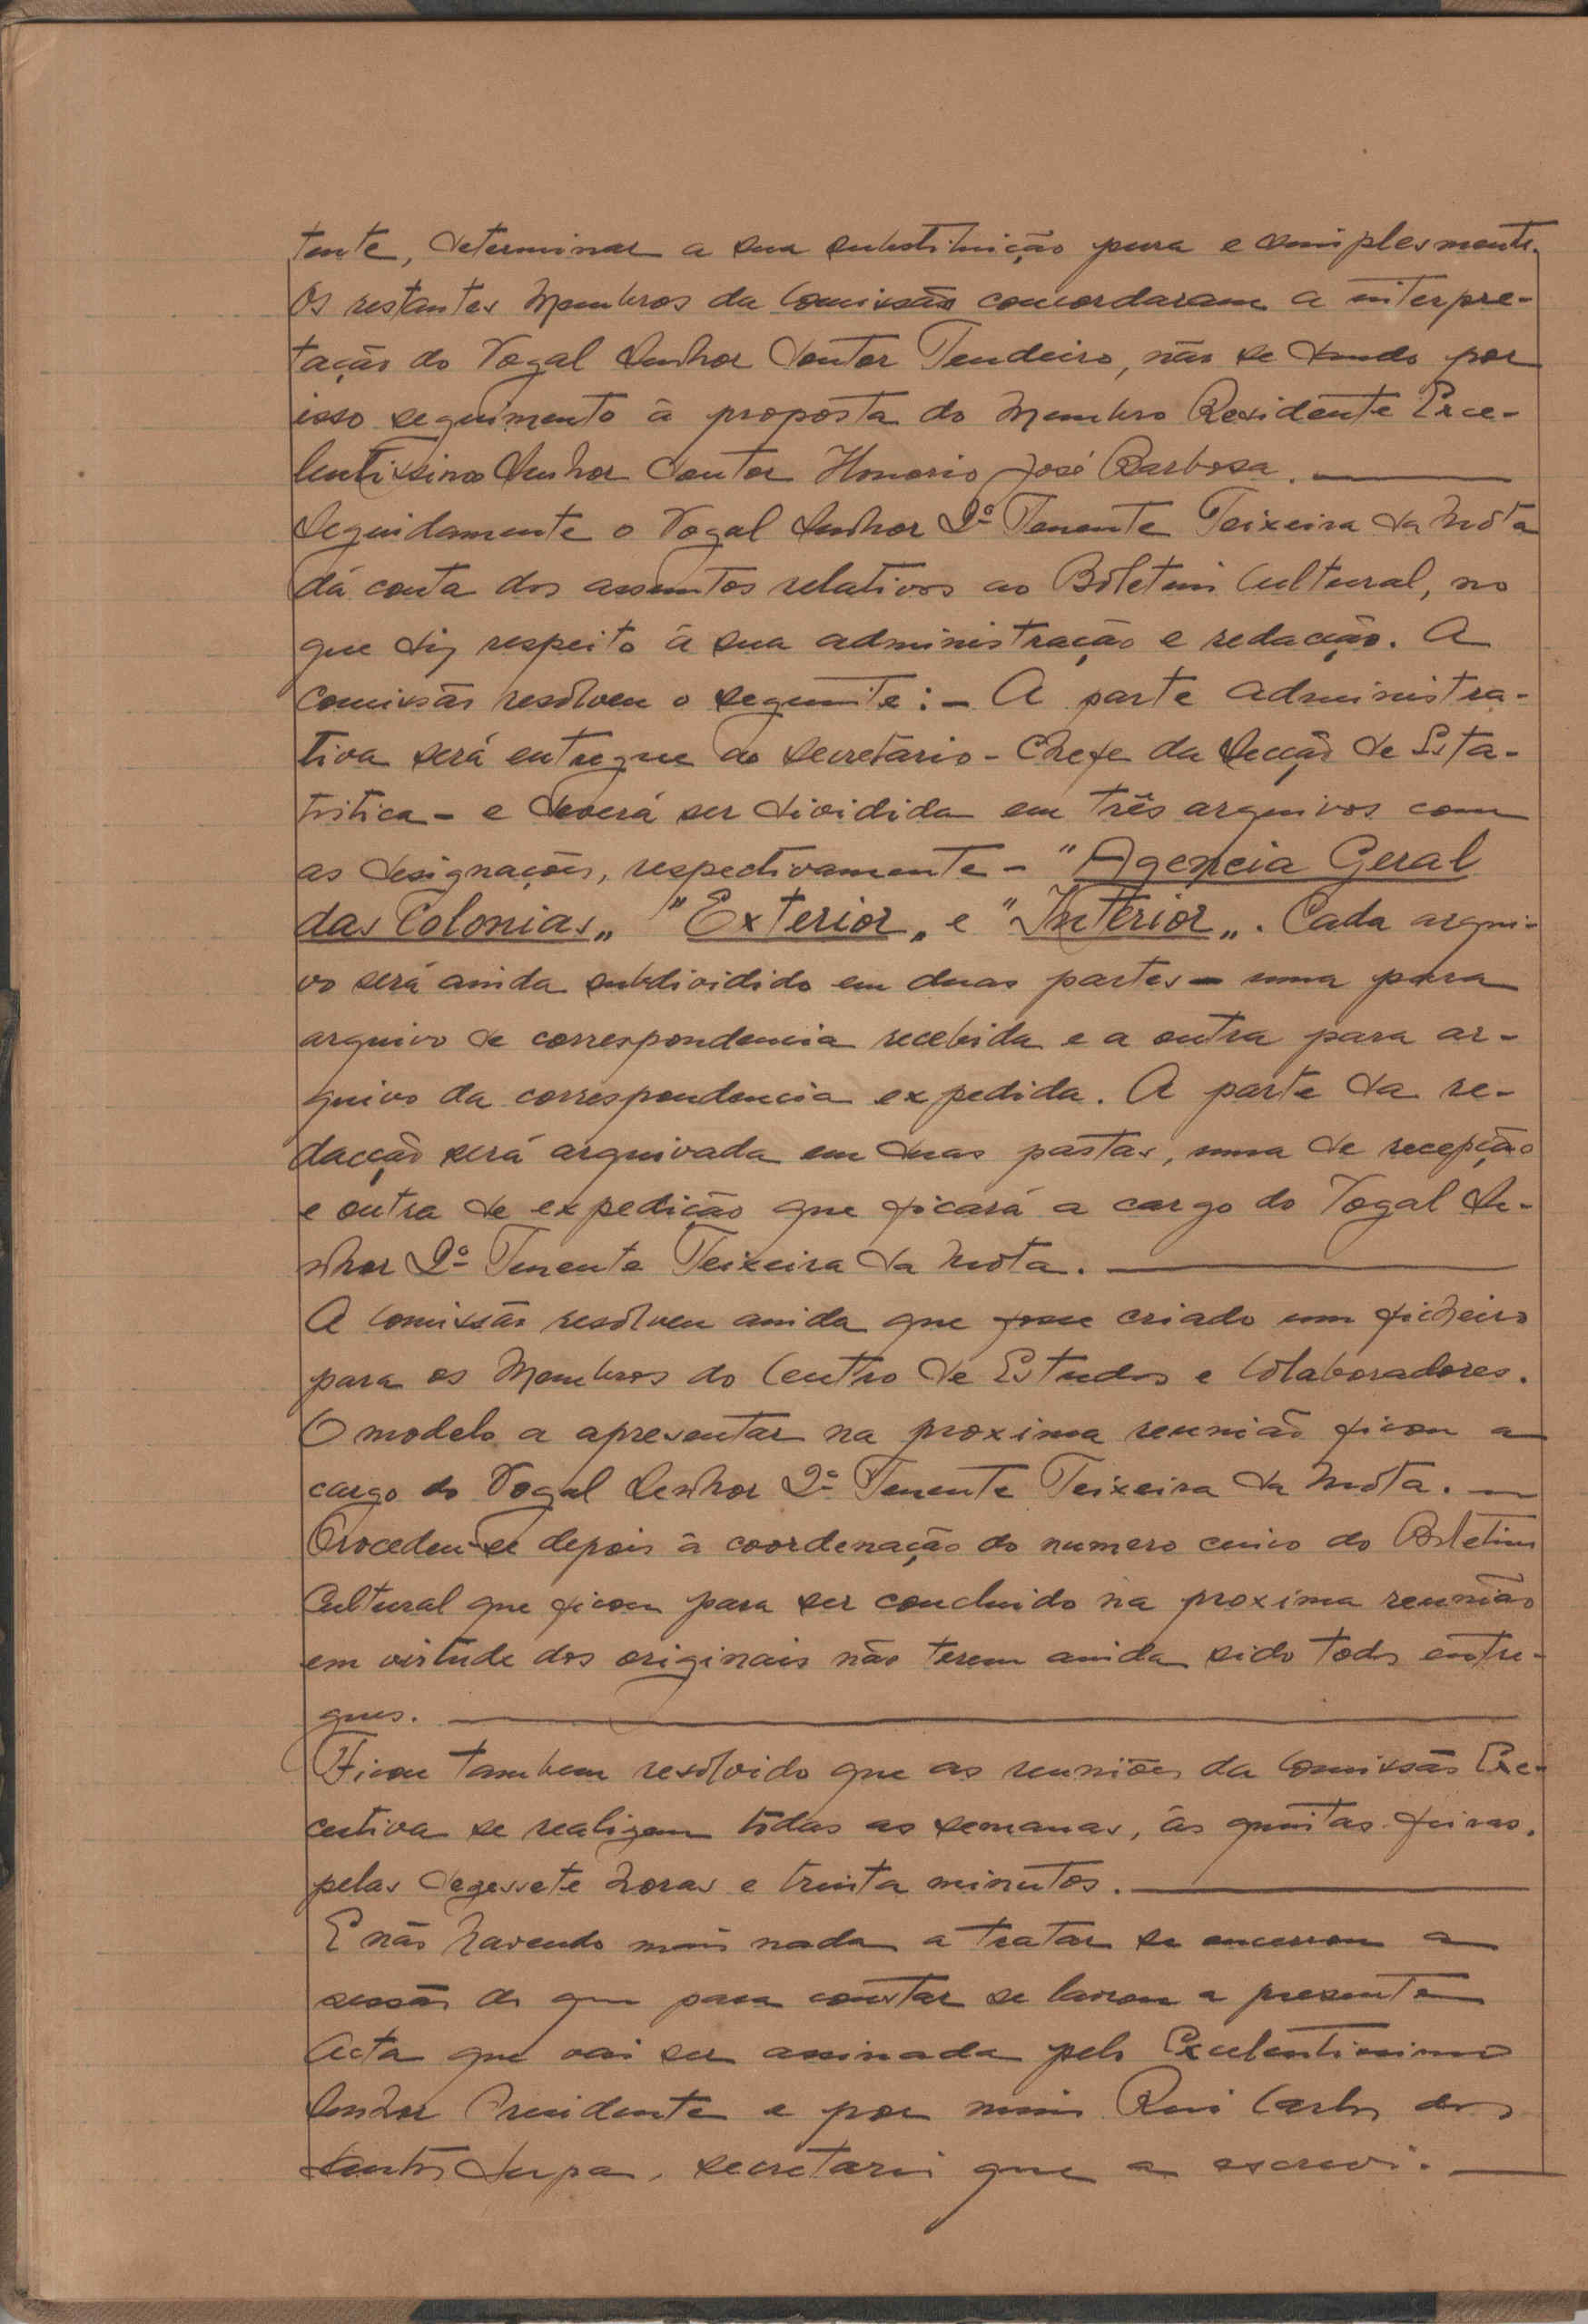 tente, determinar a sua substituição pura e simplesmente.
Os restantes Membros da Comissão concordaram a interpre-
tação do Vogal Senhor Doutor Tendeiro, não se dando por
isso seguimento à proposta do Membro Residente Exce-
lentissimo Senhor Doutor Honorio José Barbosa.
Seguidamente o Vogal Senhor 2º Tenente Teixeira da Móta
dá conta dos assuntos relativos ao Boletim Cultural, no
que diz respeito á sua administração e redacção. A
Comissão resolveu o seguinte: - A parte administra-
tiva será entregue ao secretário - Chefe da Secção de Esta-
tistica - e deverá ser dividida em três arquivos com
as designações, respectivamente - "Agencia Geral
das Colonias„ "Exterior„ e "Interior„. Cada arqui-
vo será ainda subdividido em duas partes - uma para
arquivo de correspondencia recebida e a outra para ar-
quivo da correspondencia expedida. A parte da re-
dacção será arquivada em duas pastas, uma de recepção
e outra de expedição que ficará a cargo do Vogal Se-
nhor 2º Tenente Teixeira da Móta.
A Comissão resolveu ainda que fosse criado um ficheiro
para os Membros do Centro de Estudos e Colaboradores.
O modelo a apresentar na proxima reunião ficou a
cargo do Vogal Senhor 2º Tenente Teixeira da Móta.
Procedeu-se depois á coordenação do numero cinco do Boletim
Cultural que ficou para ser concluido na proxima reunião
em virtude dos originais não terem ainda sido todos entre-
gues.
Ficou tambem resolvido que as reuniões da Comissão Exe-
cutiva se realizem tôdas as semanas, ás quintas feiras,
pelas dezessete horas e trinta minutos.
E não havendo mais nada a tratar se encerrou a
sessão de que para constar se lavrou a presente
Acta que vai ser assinada pelo Excelentissimo
Senhor Presidente e por mim Rui Carlos dos
Santos Serpa, secretario que a escrevi.